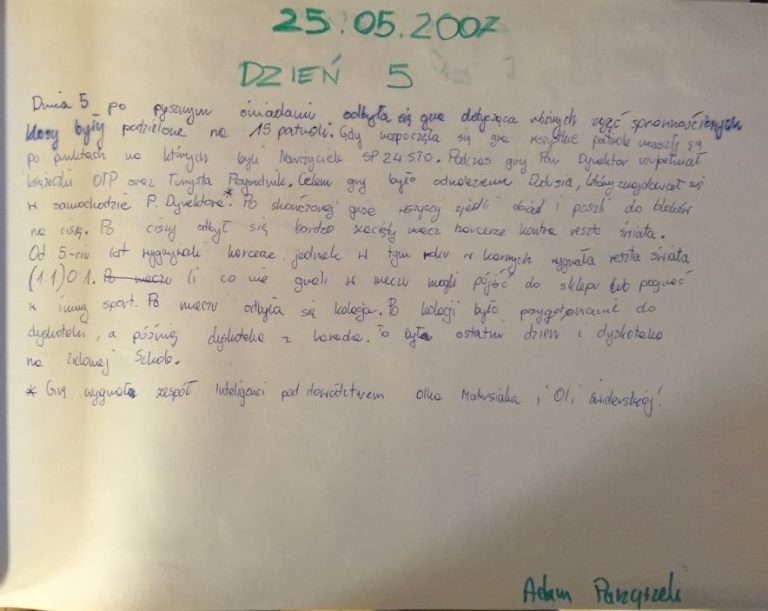 25.05.2007
DZIEŃ 5
Dnia 5 po pysznym śniadaniu odbyła się gra dotycząca różnych zajęć sprawnościowych
klasy były podzielone na 15 patroli. Gdy rozpoczęła się gra wszystkie patrole ruszyły się
po punktach na których byli Nauczyciele SP 24 STO. Podczas gry Pan Dyrektor uzupełniał
książeczki OTP oraz Turysta Przyrodnik. Celem gry było odnalezienie który znajdował się
w samochodzie P. Dyrektora.* Po skończonej grze wszyscy zjedli obiad i poszli do bloków
na ciszę. Po ciszy odbył się bardzo zacięty mecz harcerze kontra reszta świata.
Od 5-ciu lat wygrywali harcerze, jednak w tym roku w karnych wygrała reszta świata
(1:1) 0:1. Po meczu (i co nie grali w meczu mogli pójść do sklepu lub pograć
w inny sport. Po meczu odbyła się kolacja. Po kolacji było przygotowanie do
dyskoteki, a później dyskoteka z To był ostatni dzień i dyskoteka
na zielonej Szkole.
* Grę wygrała zespół Inteligenci pod dowództwem Olka Matusiaka i Oli Świderskiej!
Adam